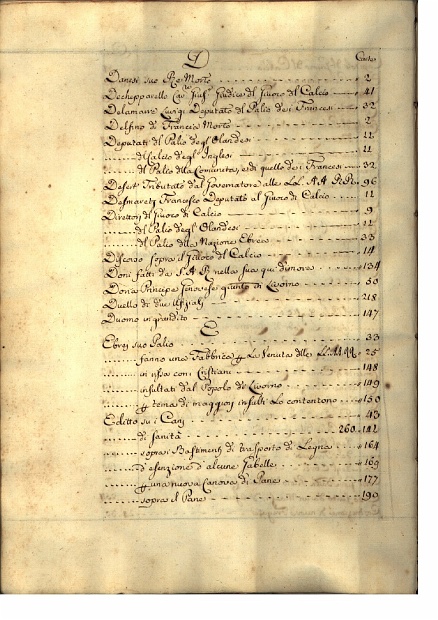 D Carte
Danesi suo Re Morto 2
Dechepparelle Cav. Giudice del Giuoco del Calcio 41
Delamare Luigi Deputato del Palio de i Francesi 32
Delfino di Francia Morto 2
Deputati del Palio degl'Olandesi 11
del Calcio degl'Inglesi 11
del Palio della Comunità, e di quello de i Francesi 32
Tributato dal Governatore alle LL. AA. RR. 96
Desmaretz Francesco Deputato al Giuoco di Calcio 11
Direttori del Giuoco di Calcio 9
del Palio degl'Olandesi 11
del Palio della Nazione Ebrea 33
Discorso sopra il Giuoco del Calcio 14
Doni fatti da S. A. R. nella sua qui dimora 134
giunto in Livorno 50
Duello di due Ufizialj 218
Duomo ingrandito 147
E
Ebrej suo Palio 33
fanno una Fabbrica p la Venuta delle LL. AA. RR. 25
in rissa con i Cristiani 148
insultati dal Popolo di Livorno 149
p tema di maggiori insulti Lo contentono 150
Editto su i Canj 43
di sanità 260. 142
sopra i Bastimenti di trasporto di Legna 164
d'esenzione d'alcune Gabelle 169
p una nuova Canova di Pane 177
sopra il Pane 190